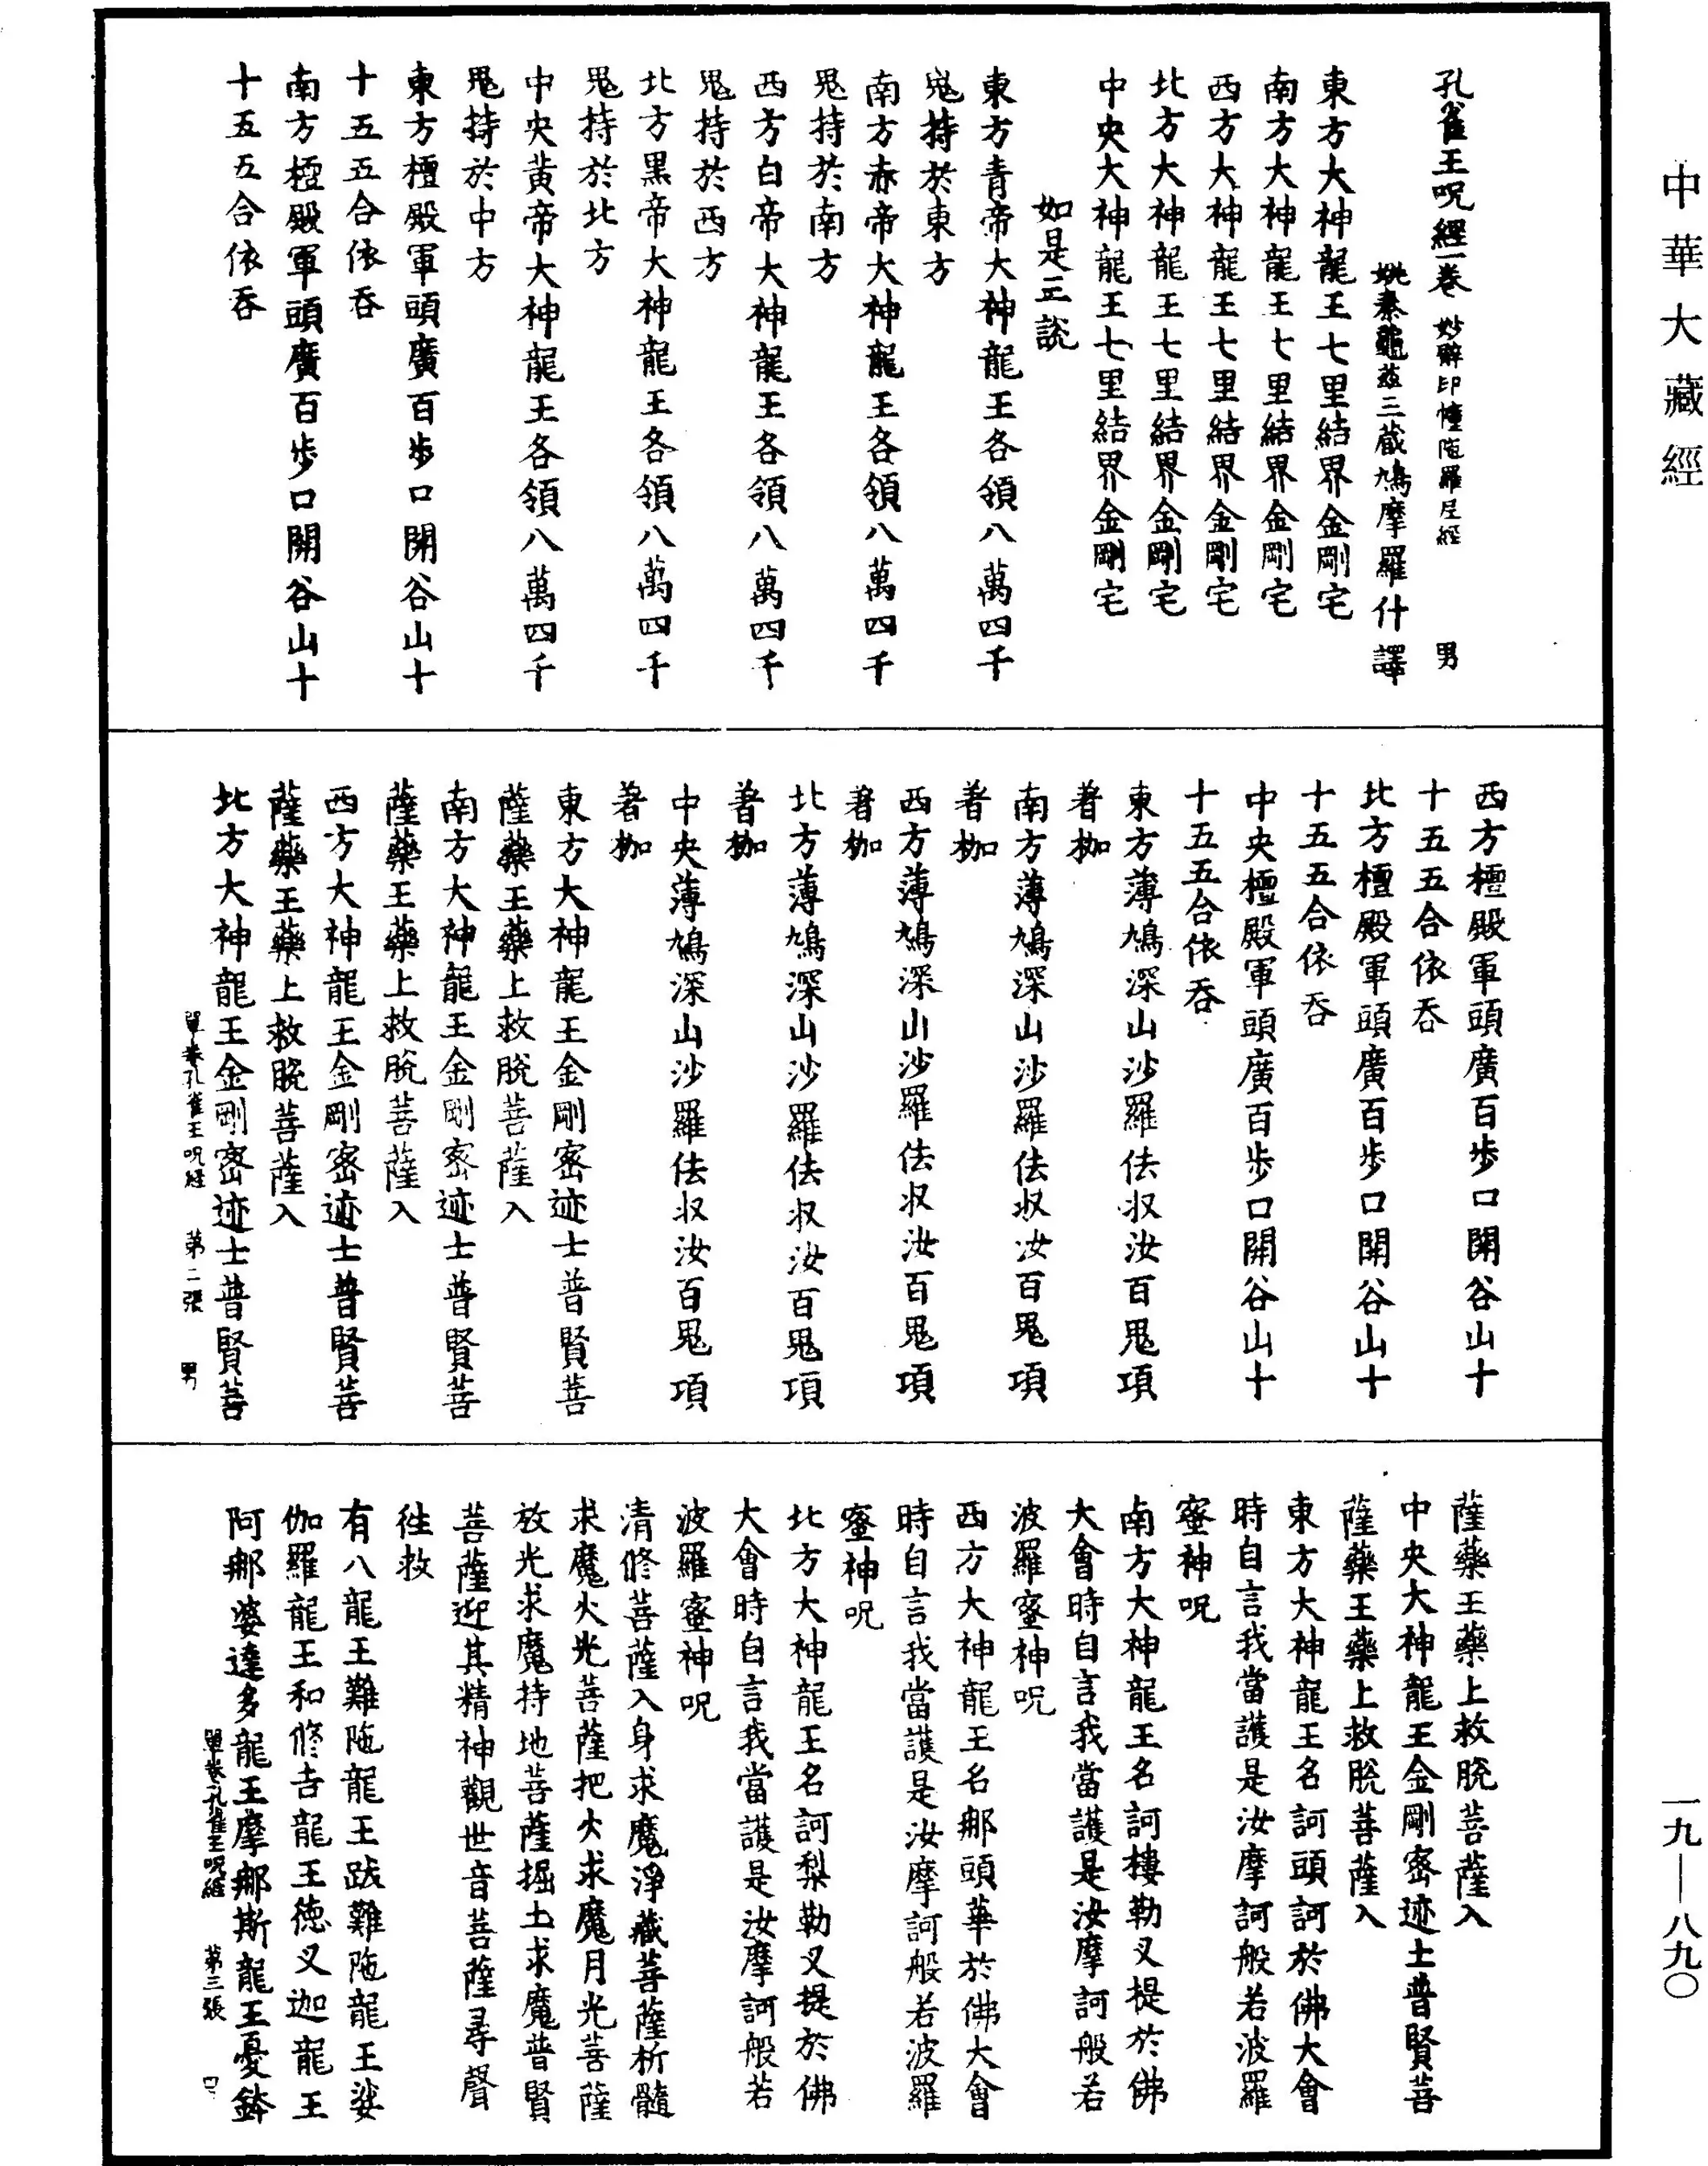 中華大藏經
孔雀王呪經一卷 妙辟印幢陁羅尼經 男
姚秦龜茲三藏鳩摩羅什譯
東方大神龍王七里結界金剛宅
南方大神龍王七里結界金剛宅
西方大神龍王七里結界金剛宅
北方大神龍王七里結界金剛宅
中央大神龍王七里結界金剛宅
如是三說
東方青帝大神龍王各領八萬四千
鬼持於東方
南方赤帝大神龍王各領八萬四千
鬼持於南方
西方白帝大神龍王各領八萬四千
鬼持於西方
北方黑帝大神龍王各領八萬四千
鬼持於北方
中央黃帝大神龍王各領八萬四千
鬼持於中方
東方檀殿軍頭廣百步口開谷山十
十五五合依吞
南方檀殿軍頭廣百步口開谷山十
十五五合依吞
西方檀殿軍頭廣百步口開谷山十
十五五合依吞
北方檀殿軍頭廣百步口開谷山十
十五五合依吞
中央檀殿軍頭廣百步口開谷山十
十五五合依吞
東方薄鳩深山沙羅佉収汝百鬼項
著枷
南方薄鳩深山沙羅佉収汝百鬼項
著枷
西方薄鳩深山沙羅佉収汝百鬼項
著枷
北方薄鳩深山沙羅佉収汝百鬼項
著枷
中央薄鳩深山沙羅佉収汝百鬼項
著枷
東方大神龍王金剛密迹士普賢菩
薩藥王藥上救脫菩薩入
南方大神龍王金剛密迹士普賢菩
薩藥王藥上救脫菩薩入
西方大神龍王金剛密迹士普賢菩
薩藥王藥上救脫菩薩入
北方大神龍王金剛密迹士普賢菩
單卷孔雀王呪經 第二張 男
薩藥王藥上救脫菩薩入
中央大神龍王金剛密迹士普賢菩
薩藥王藥上救脫菩薩入
東方大神龍王名訶頭訶於佛大會
時自言我當護是汝摩訶般若波羅
蜜神呪
南方大神龍王名訶樓勒叉提於佛
大會時自言我當護是汝摩訶般若
波羅蜜神呪
西方大神龍王名郍頭華於佛大會
時自言我當護是汝摩訶般若波羅
蜜神呪
北方大神龍王名訶梨勒叉提於佛
大會時自言我當護是汝摩訶般若
波羅蜜神呪
清修菩薩入身求魔淨藏菩薩析髓
求魔火光菩薩把火求魔月光菩薩
放光求魔持地菩薩掘土求魔普賢
菩薩迎其精神觀世音菩薩尋聲
往救
有八龍王難陁龍王跋難陁龍王娑
伽羅龍王和修吉龍王德叉迦龍王
阿郍婆達多龍王摩郍斯龍王憂鉢
單卷孔雀王呪經 第三張
一九—八九〇